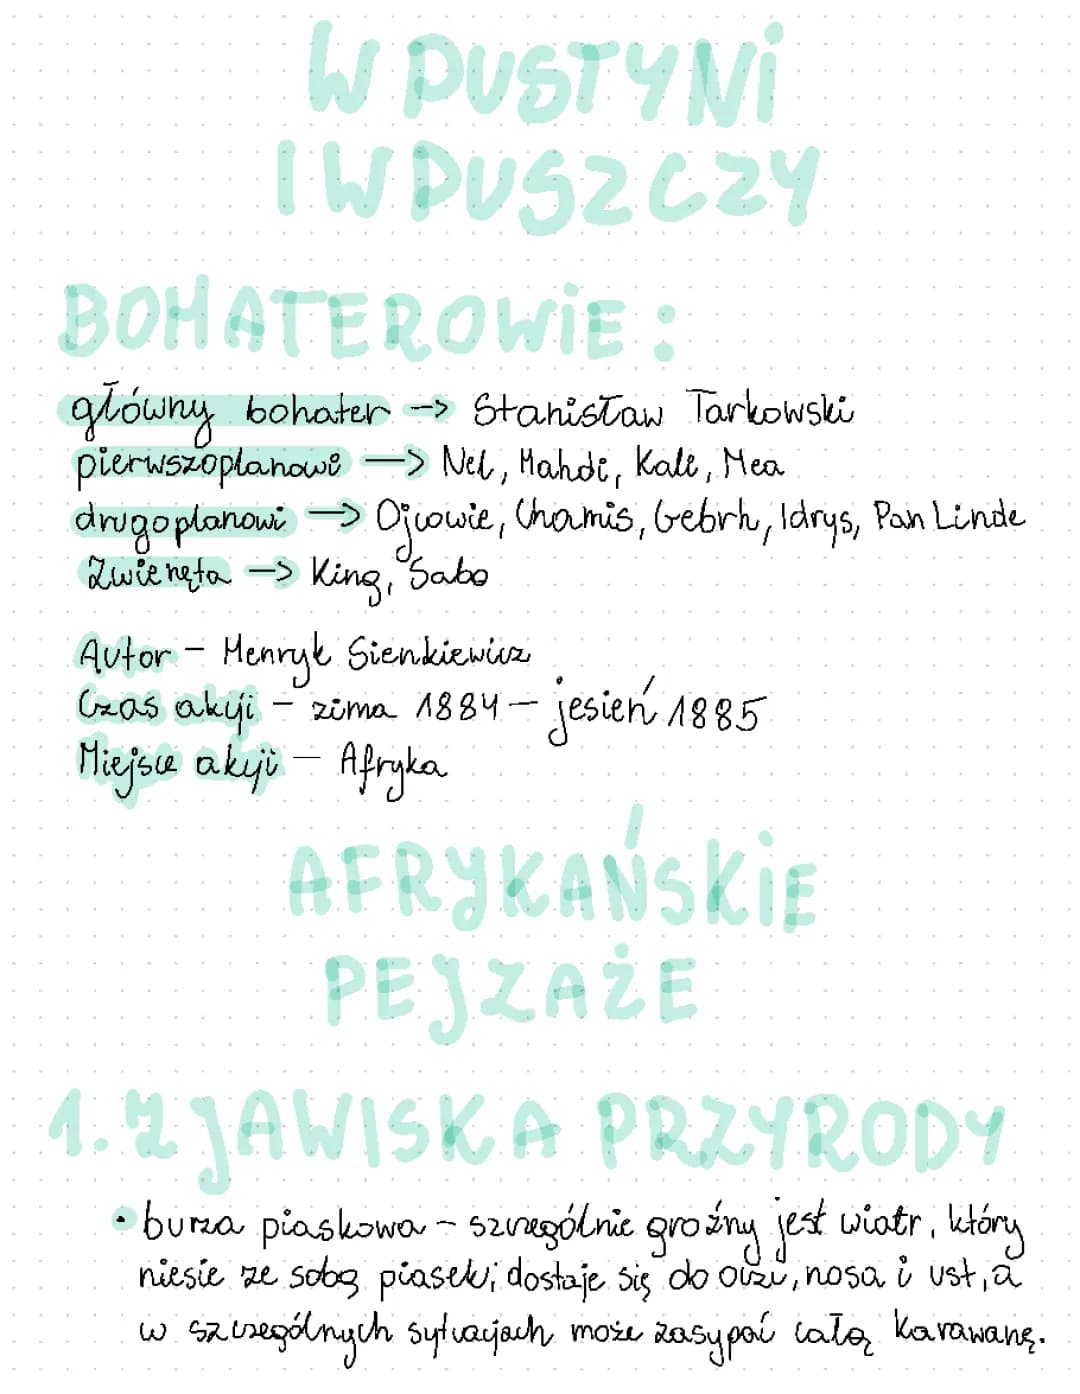 W PUSTYNI
I W PUSZCZY
BOHATEROWIE:
główny bohater -> Stanisław Tarkowski
pierwszoplanowi -> Nel, Mahdi, Kali, Mea
drugoplanowi -> Ojcowie, Chamis, Gebrh, Idrys, Pan Linde
Zwierzęta -> King, Sabo
Autor - Henryk Sienkiewicz
Czas akcji - zima 1884 - jesień 1885
Miejsce akcji - Afryka
AFRYKAŃSKIE
PEJZAŻE
1. ZJAWISKA PRZYRODY
• burza piaskowa - szczególnie groźny jest wiatr, który
niesie ze sobą piasek; dostaje się do oczu, nosa i ust, a
w szczególnych sytuacjach może zasypać całą karawanę.